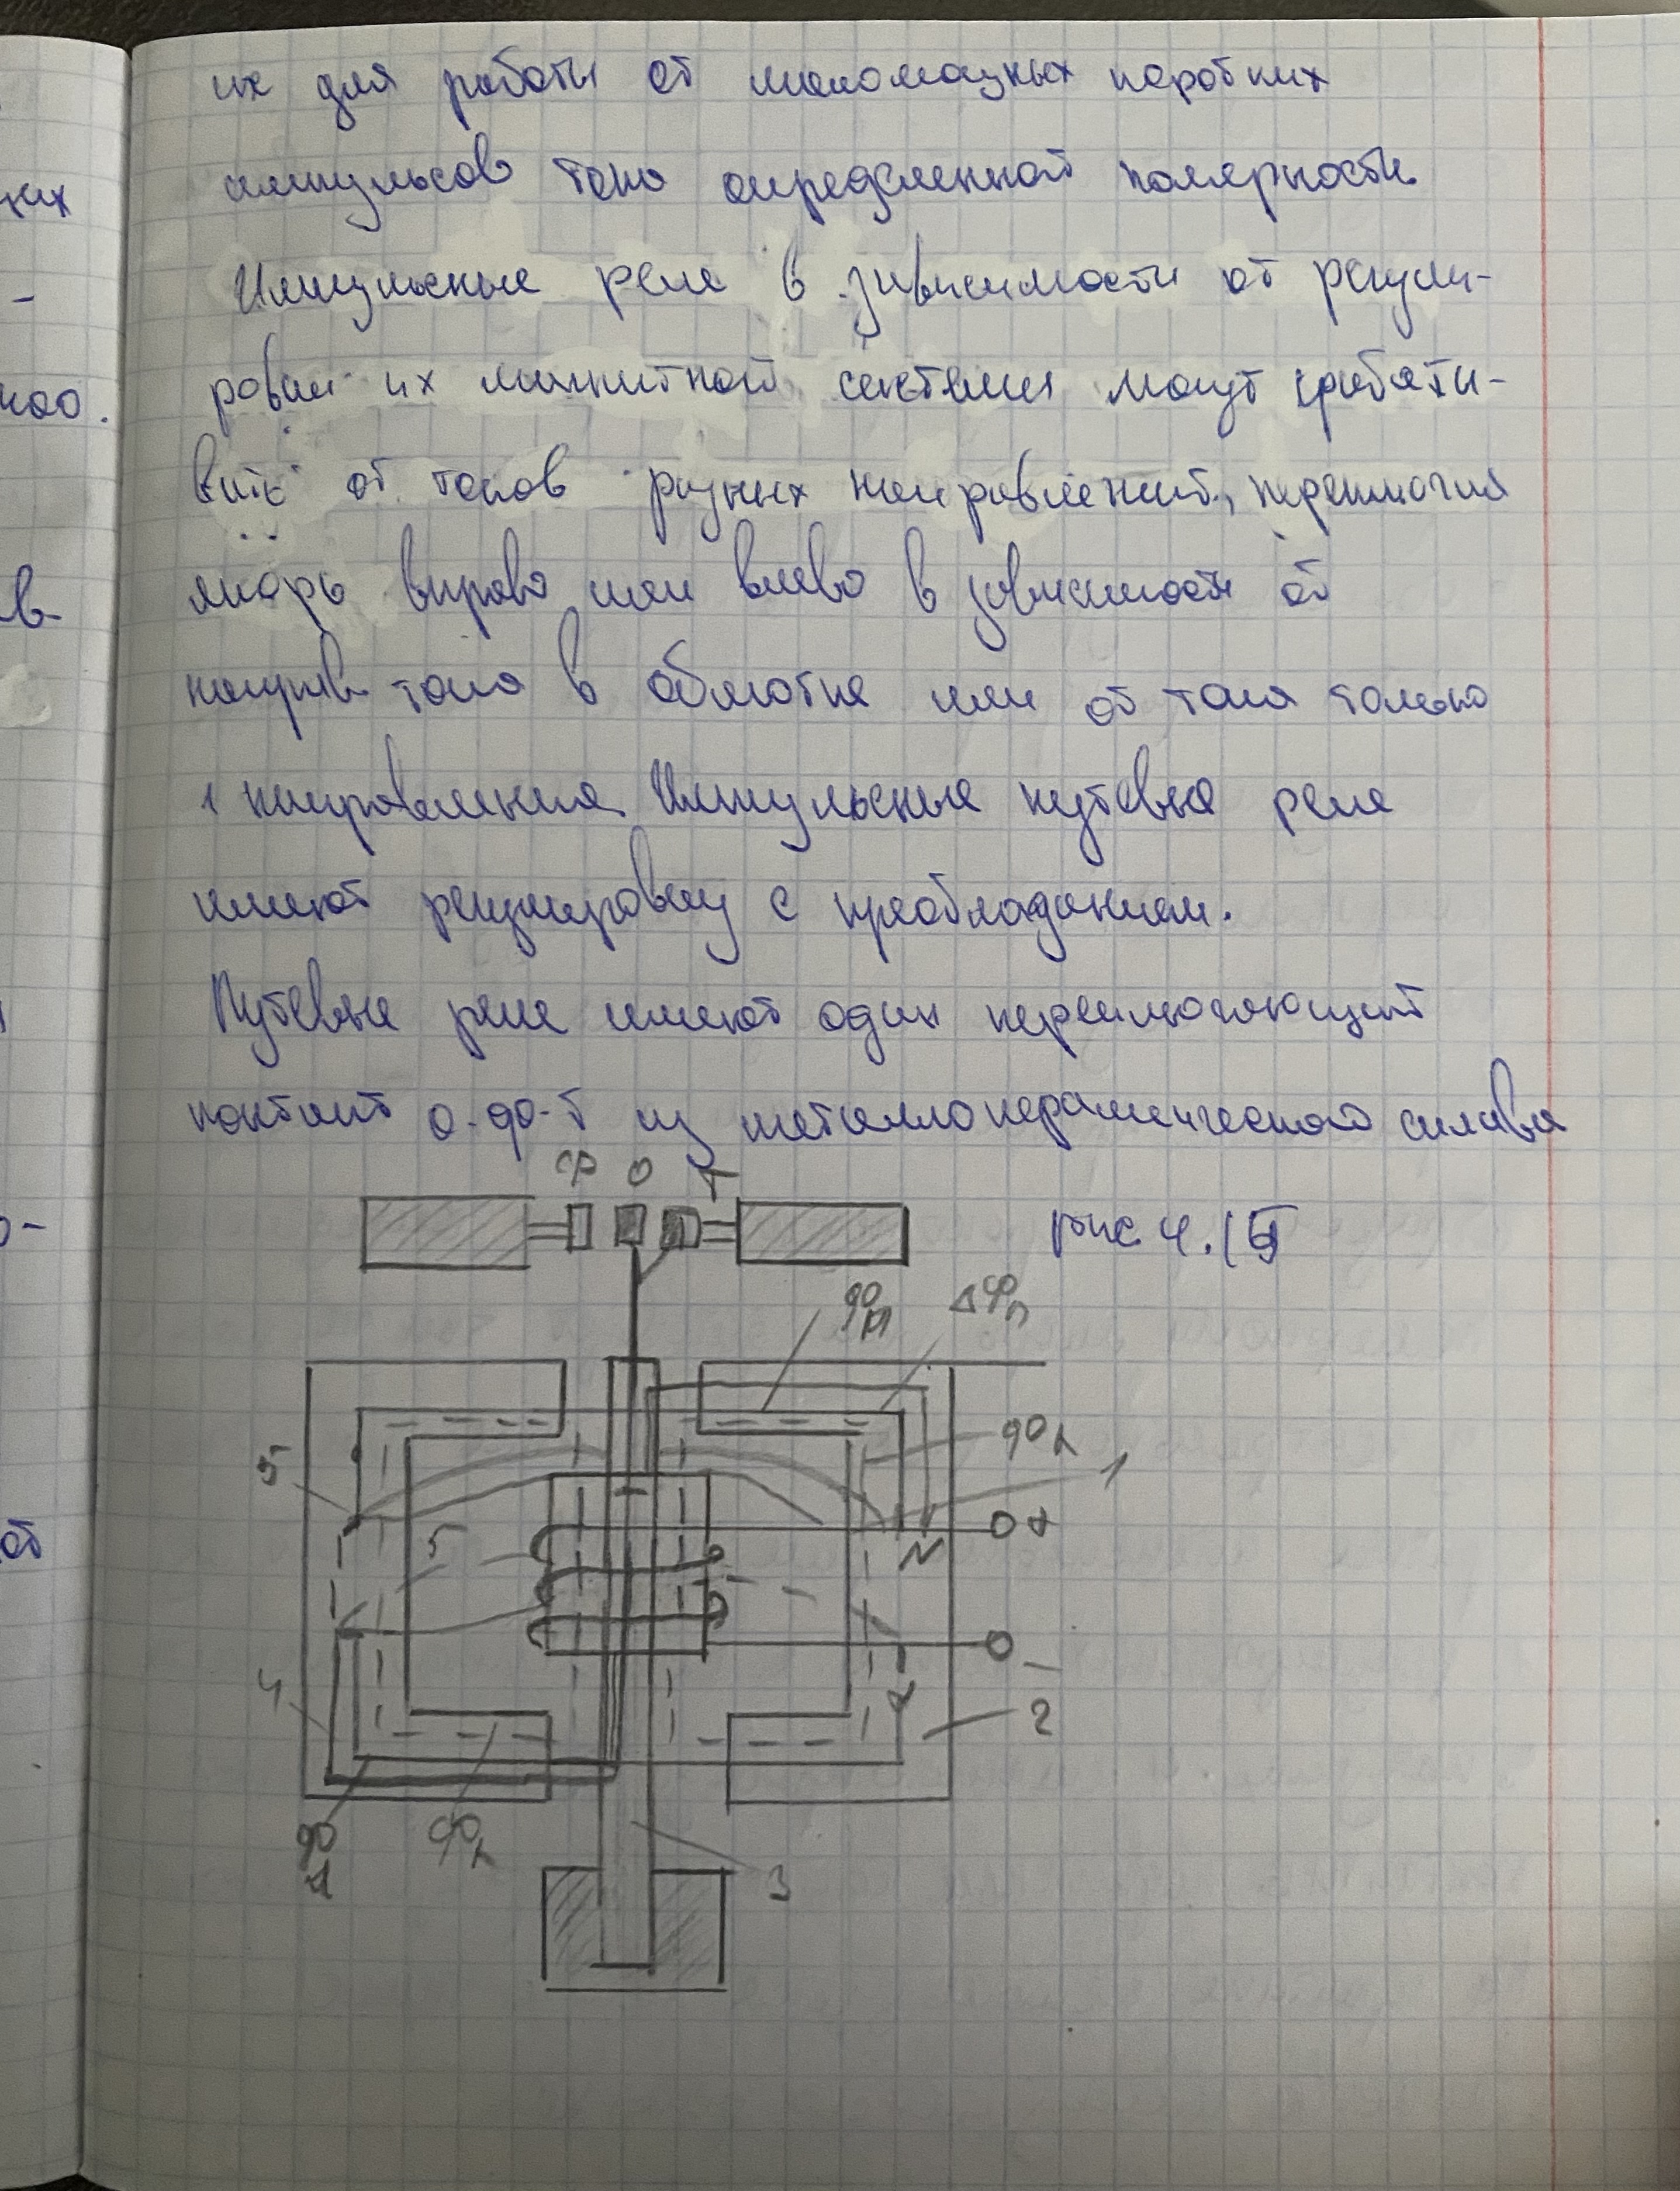 их для работы от маломощных коротких
импульсов тока определенной полярности
Импульсные реле в зависимости от регули-
ровки их магнитной системы могут срабаты-
вать от токов разных направлений, переключая
якорь вправо или влево в зависимости от
направ тока в обмотке или от тока только
1 направления. Импульсные путевые реле
имеют регулировку с преобладанием.
Путевые реле имеют один переключающий
контакт о-ф-т из металлокерамического сплава
Ф О Т
рис 4.15
Фм ΔФп
Фд
5
1
5
О +
N
О -
4
2
Ф Фд
3
ких
-
ного.
в
о-
от